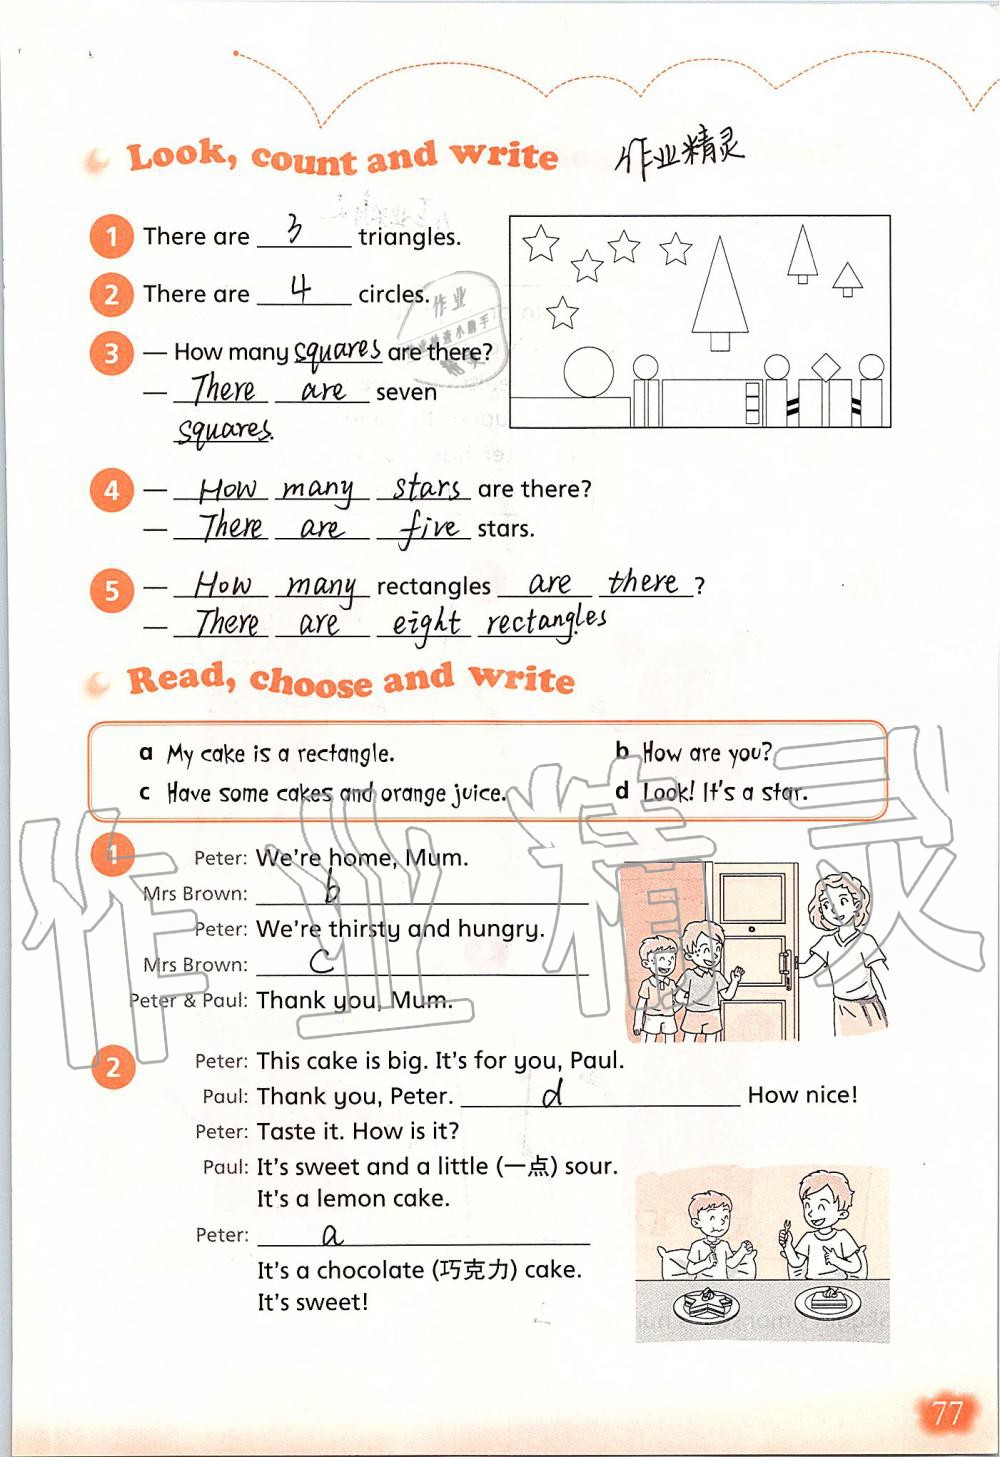 Look, count and write
作业精灵
1 There are 3 triangles.
2 There are 4 circles.
3 — How many squares are there?
— There are seven
squares.
4 — How many stars are there?
— There are five stars.
5 — How many rectangles are there ?
— There are eight rectangles
Read, choose and write
a My cake is a rectangle.
b How are you?
c Have some cakes and orange juice.
d Look! It's a star.
1 Peter: We're home, Mum.
Mrs Brown: b
Peter: We're thirsty and hungry.
Mrs Brown: c
Peter & Paul: Thank you, Mum.
2 Peter: This cake is big. It's for you, Paul.
Paul: Thank you, Peter. d How nice!
Peter: Taste it. How is it?
Paul: It's sweet and a little (一点) sour.
It's a lemon cake.
Peter: a
It's a chocolate (巧克力) cake.
It's sweet!
77
作业精灵